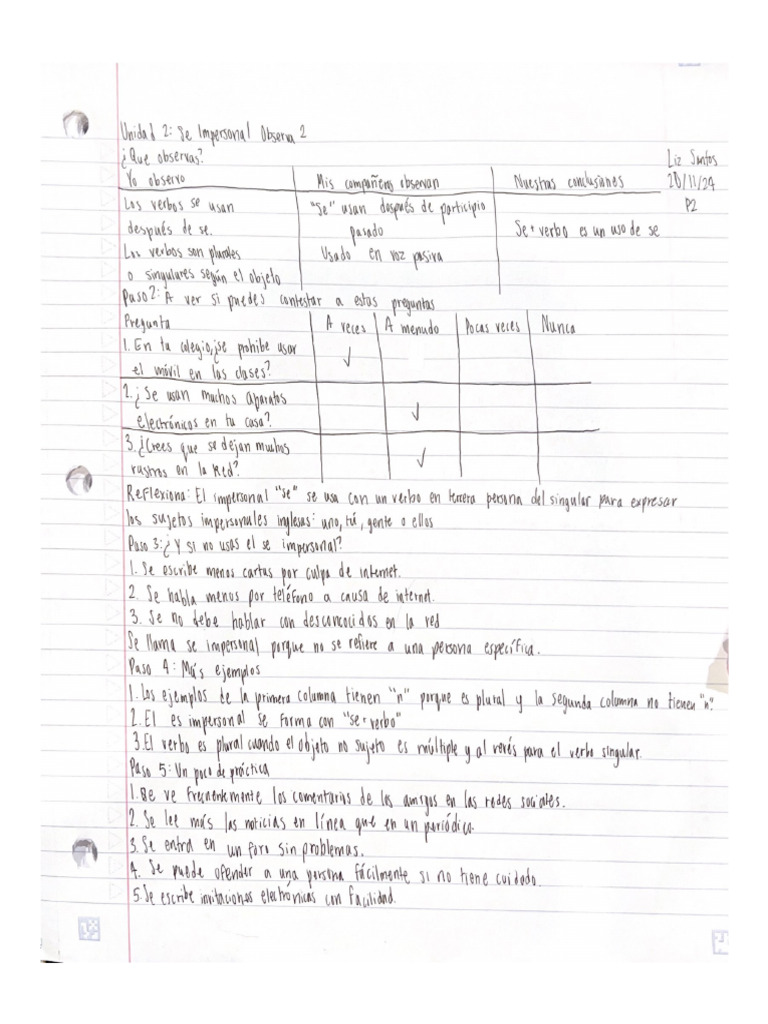 Unidad 2: Se Impersonal Observa 2
¿Que observas?
Liz Santos
20/11/24
P2
Yo observo | Mis compañeros observan | Nuestras conclusiones
Los verbos se usan | "Se" usan después de participio
después de se. | pasado | Se + verbo es un uso de se
Los verbos son plurales | Usado en voz pasiva
o singulares según el objeto
Paso 2: A ver si puedes contestar a estas preguntas
Pregunta | A veces | A menudo | Pocas veces | Nunca
1. En tu colegio, ¿se prohibe usar | ✓
el móvil en las clases?
2. ¿Se usan muchos aparatos
electrónicos en tu casa? | ✓
3. ¿Crees que se dejan muchos
rastros en la Red? | ✓
Reflexiona: El impersonal "se" se usa con un verbo en tercera persona del singular para expresar
los sujetos impersonales inglesas: uno, tú, gente o ellos
Paso 3: ¿Y si no usas el se impersonal?
1. Se escribe menos cartas por culpa de internet.
2. Se habla menos por teléfono a causa de internet.
3. Se no debe hablar con desconocidos en la red
Se llama se impersonal porque no se refiere a una persona específica.
Paso 4: Más ejemplos
1. Los ejemplos de la primera columna tienen "n" porque es plural y la segunda columna no tienen "n".
2. El es impersonal se forma con "se + verbo"
3. El verbo es plural cuando el objeto no sujeto es múltiple y al verés para el verbo singular.
Paso 5: Un poco de práctica
1. Se ve frecuentemente los comentarios de los amigos en las redes sociales.
2. Se lee más las noticias en línea que en un periódico.
3. Se entra en un foro sin problemas.
4. Se puede ofender a una persona fácilmente si no tiene cuidado.
5. Se escribe invitaciones electrónicas con facilidad.